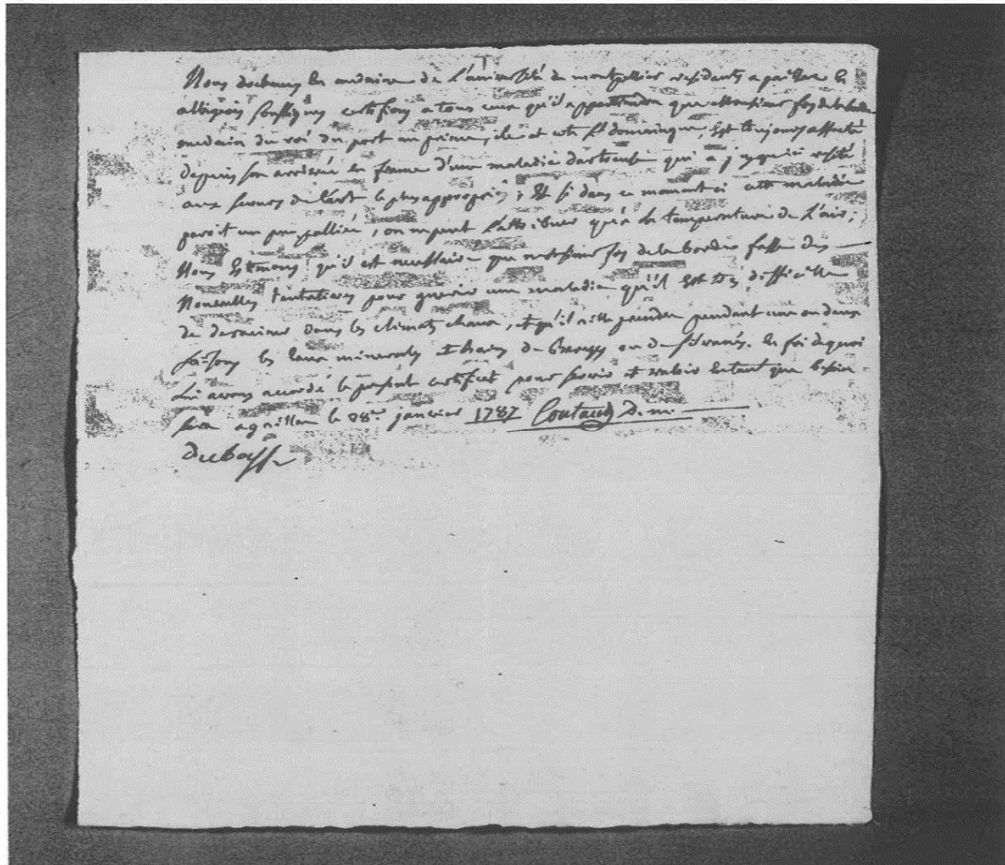 Nous docteurs en medecine de L'université de montpellier residants a gaillac en
albigeois soussignes certifions a tous ceux qu'il appartiendra que monsieur foy de la borde
medecin du roi du port au prince, ile et cote st domaingue, Est toujours affecté
depuis son arrivée en france d'une maladie dartreuse qui a jusqu'ici resisté
aux secours de l'art le plus appropriés; Et si dans ce moment ci cette maladie
paroit un peu palliée, on ne peut l'attribuer qu'a la temperature de L'air;
Nous Estimons qu'il est necessaire que monsieur foy de la borde fasse des
Nouvelles tentatives pour guerir une maladie qu'il Est très difficille
de deraciner dans les climats chauds, et qu'il aille prendre pendant une ou deux
saisons les Eaux minerales et bains de Bareges ou de . En foi de quoi
lui avons accordé le present certificat pour servir et valoir En tant que besoin
sera a gaillac le 28me janvier 1787 Coutaud D. m.
Duboyss